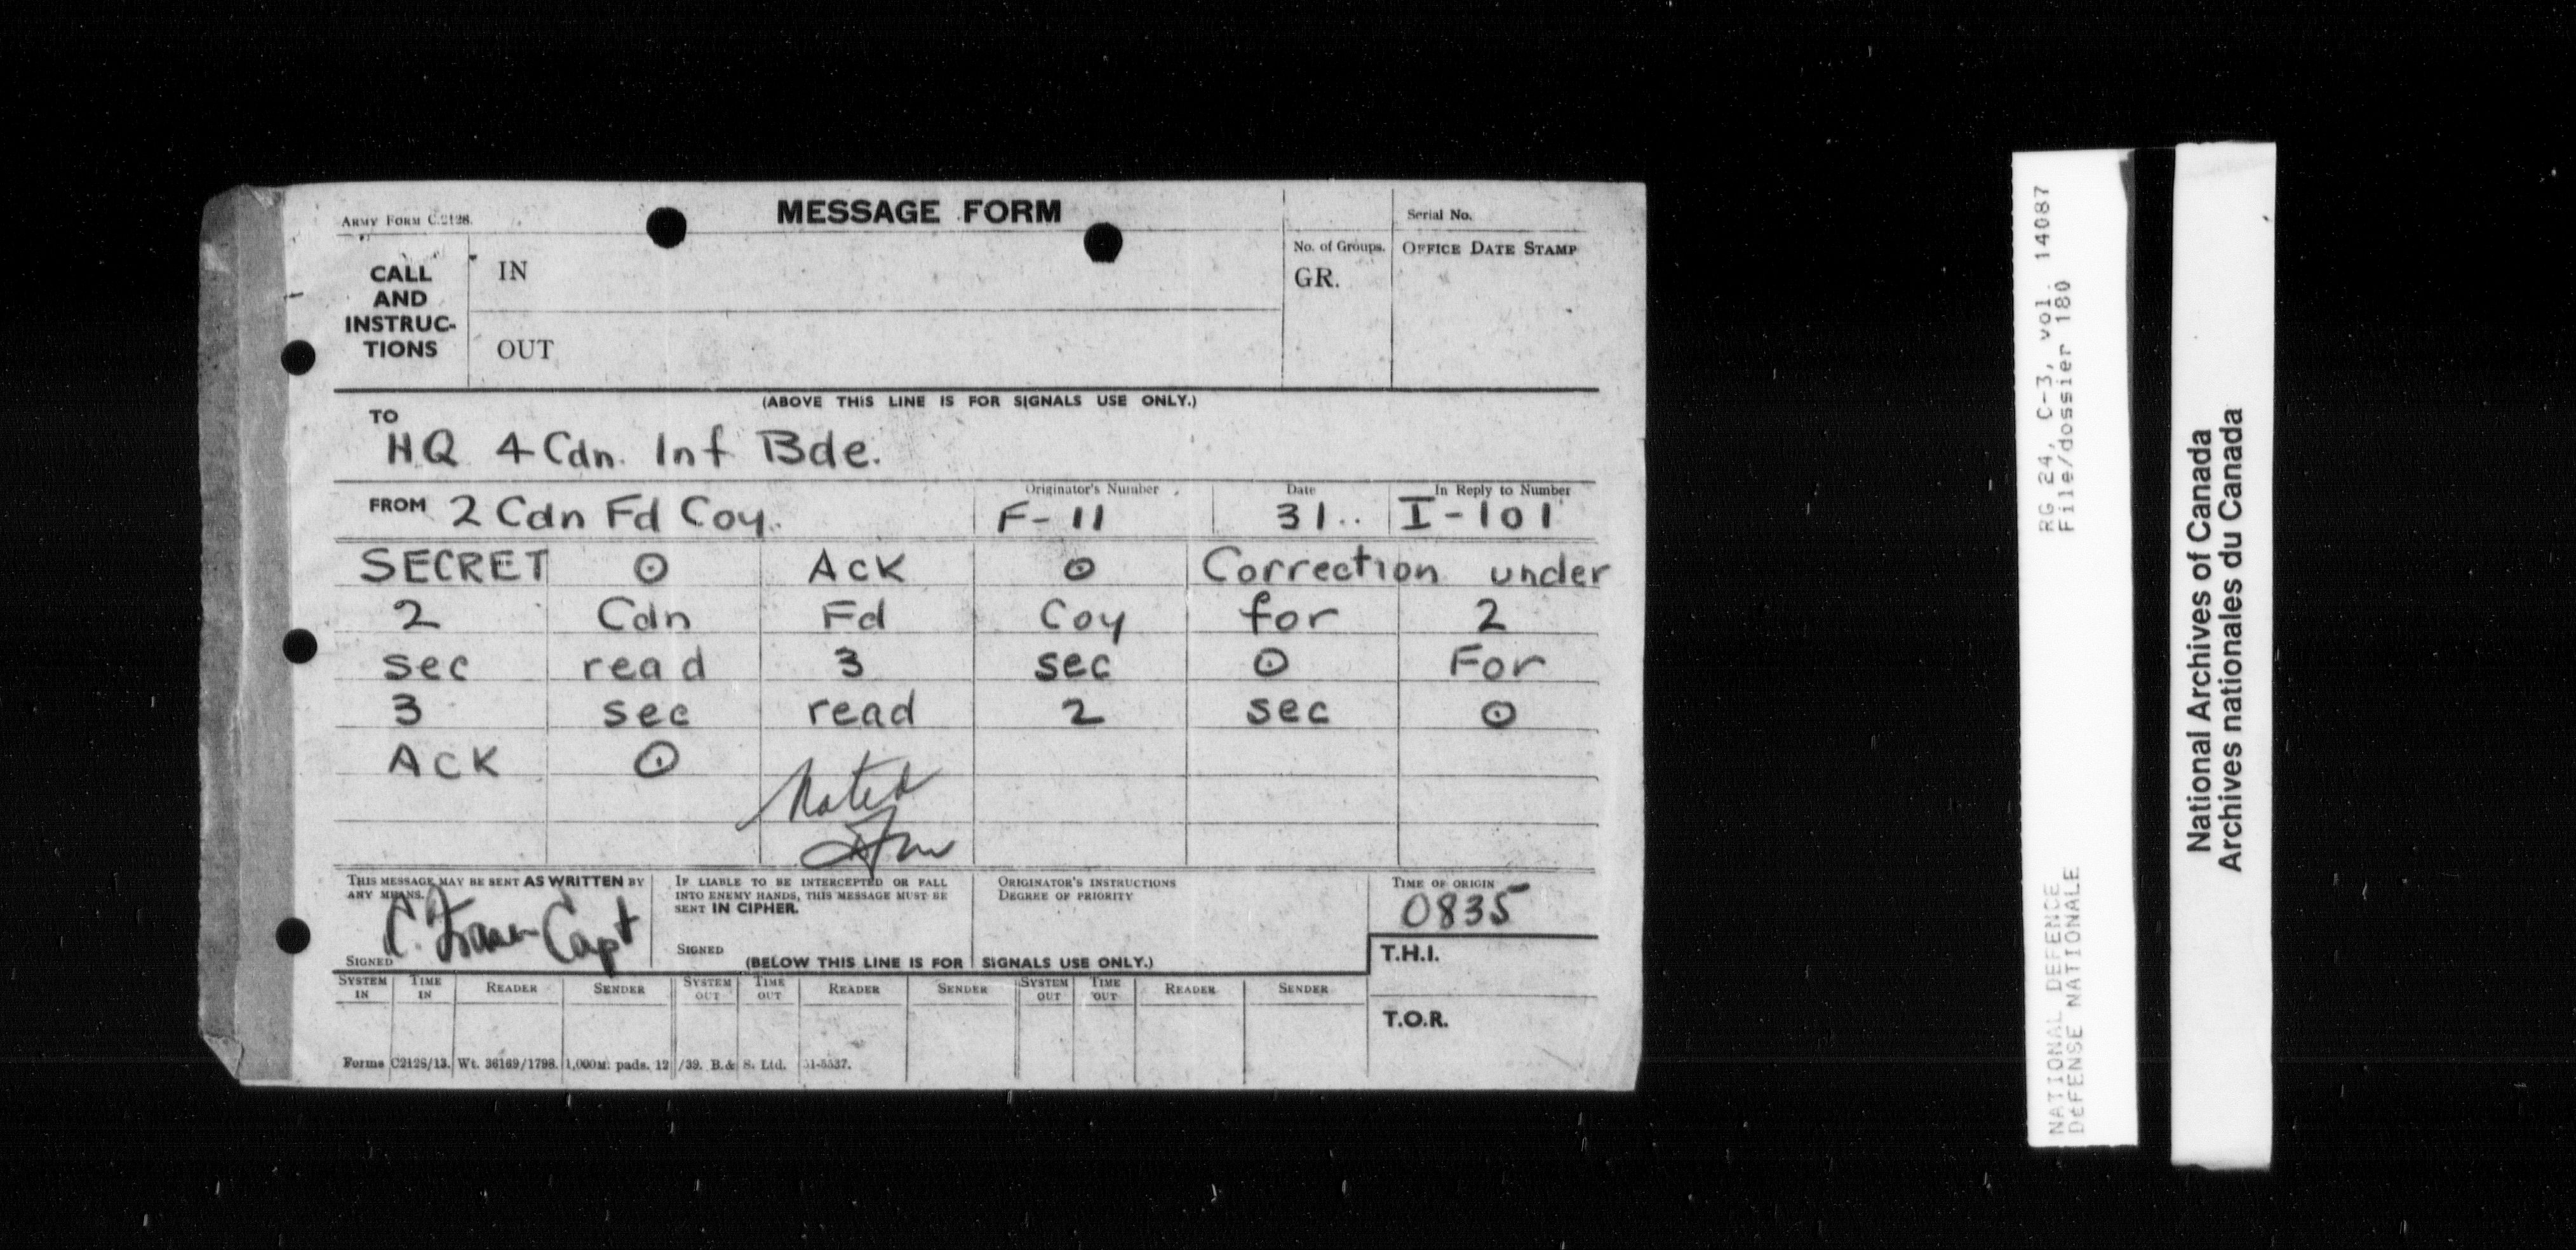 ARMY FORM C.2128.
MESSAGE FORM
Serial No.
CALL AND INSTRUC-TIONS
IN
OUT
No. of Groups.
GR.
OFFICE DATE STAMP
(ABOVE THIS LINE IS FOR SIGNALS USE ONLY.)
TO
HQ 4 Cdn. Inf Bde.
FROM 2 Cdn Fd Coy.
Originator's Number
F-11
Date
31..
In Reply to Number
I-101
SECRET ⊙ Ack ⊙ Correction under
2 Cdn Fd Coy for 2
sec read 3 sec ⊙ For
3 sec read 2 sec ⊙
Ack ⊙
Noted
THIS MESSAGE MAY BE SENT AS WRITTEN BY
ANY MEANS.
C. Capt
SIGNED
IF LIABLE TO BE INTERCEPTED OR FALL
INTO ENEMY HANDS, THIS MESSAGE MUST BE
SENT IN CIPHER.
SIGNED
ORIGINATOR'S INSTRUCTIONS
DEGREE OF PRIORITY
TIME OF ORIGIN
0835
(BELOW THIS LINE IS FOR SIGNALS USE ONLY.)
T.H.I.
SYSTEM IN TIME IN READER SENDER SYSTEM OUT TIME OUT READER SENDER SYSTEM OUT TIME OUT READER SENDER
T.O.R.
Forms C2128/13. Wt. 36169/1798. 1,000M. pads. 12/39. B.& S. Ltd. 51-5537.
RG 24, C-3, vol. 14087
File/dossier 180
NATIONAL DEFENCE
DÉFENSE NATIONALE
National Archives of Canada
Archives nationales du Canada